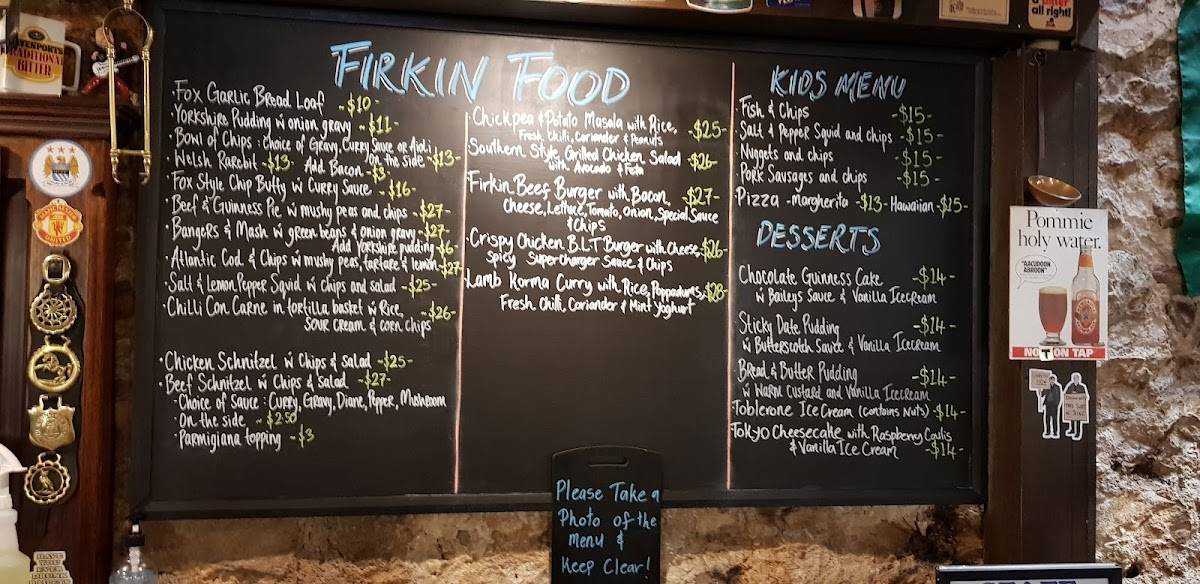 FIRKIN FOOD
·Fox Garlic Bread Loaf -$10-
·Yorkshire Pudding w onion gravy -$11-
·Bowl of Chips : choice of Gravy, Curry Sauce or Aioli
On the side -$13-
·Welsh Rarebit -$13- Add Bacon -$3-
·Fox Style Chip Butty w Curry Sauce -$16-
·Beef & Guinness Pie w mushy peas and chips -$27-
·Bangers & Mash w green beans & onion gravy -$27-
Add Yorkshire pudding -$6-
·Atlantic Cod & Chips w mushy peas, tartare & lemon -$27-
·Salt & Lemon Pepper Squid w chips and salad -$25-
·Chilli Con Carne in tortilla basket w Rice, -$26-
Sour cream & corn chips
·Chicken Schnitzel w Chips & Salad -$25-
·Beef Schnitzel w Chips & Salad -$27-
·Choice of Sauce : Curry, Gravy, Diane, Pepper, Mushroom
·On the side -$2.50
·Parmigiana topping -$3
·Chickpea & Potato Masala with Rice, -$25-
Fresh Chilli, Coriander & Peanuts
·Southern Style Grilled Chicken Salad -$26-
with Avocado & Feta
·Firkin Beef Burger with Bacon, -$27-
Cheese, Lettuce, Tomato, Onion, Special Sauce
& Chips
·Crispy Chicken B.L.T Burger with Cheese, -$26-
Spicy Supercharger Sauce & Chips
·Lamb Korma Curry with Rice, Poppadums, -$28-
Fresh Chilli, Coriander & Mint Yoghurt
KIDS MENU
·Fish & Chips -$15-
·Salt & Pepper Squid and chips -$15-
·Nuggets and chips -$15-
·Pork Sausages and chips -$15-
Pizza -Margherita -$13- Hawaiian -$15-
DESSERTS
Chocolate Guinness Cake -$14-
w Baileys Sauce & Vanilla Icecream
Sticky Date Pudding -$14-
w Butterscotch Sauce & Vanilla Icecream
Bread & Butter Pudding -$14-
w Warm Custard and Vanilla Icecream
Toblerone Ice Cream (contains Nuts) -$14-
Tokyo Cheesecake with Raspberry Coulis
& Vanilla Ice Cream -$14-
Please Take a
Photo of the
menu &
Keep Clear!
Pommie
holy water.
"AACUDOON
ABROON"
NOT ON TAP
all right!
TRADITIONAL
BITTER
MANCHESTER
UNITED